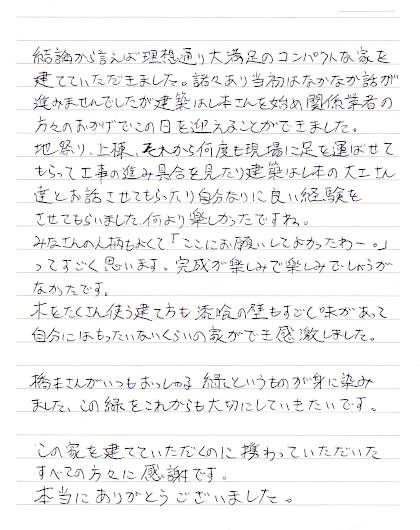 結論から言えば理想通り大満足のコンパクトな家を
建てていただきました。諸々あり当初はなかなか話が
進みませんでしたが建築はし本さんを始め関係業者の
方々のおかげでこの日を迎えることができました。
地祭り、上棟、それから何度も現場に足を運ばせて
もらって工事の進み具合を見たり建築はし本の大工さん
達とお話させてもらったり自分なりに良い経験を
させてもらいました。何より楽しかったですね。
みなさんの人柄もよくて「ここにお願いしてよかったわー。」
ってすごく思います。完成が楽しみで楽しみでしょうが
なかったです。
木をたくさん使う建て方も漆喰の壁もすごし味があって
自分にはもったいないくらいの家ができ感激しました。
橋本さんがいつもおっしゃる縁というものが身に染み
ました、この縁をこれからも大切にしていきたいです。
この家を建てていただくのに携わっていただいた
すべての方々に感謝です。
本当にありがとうございました。